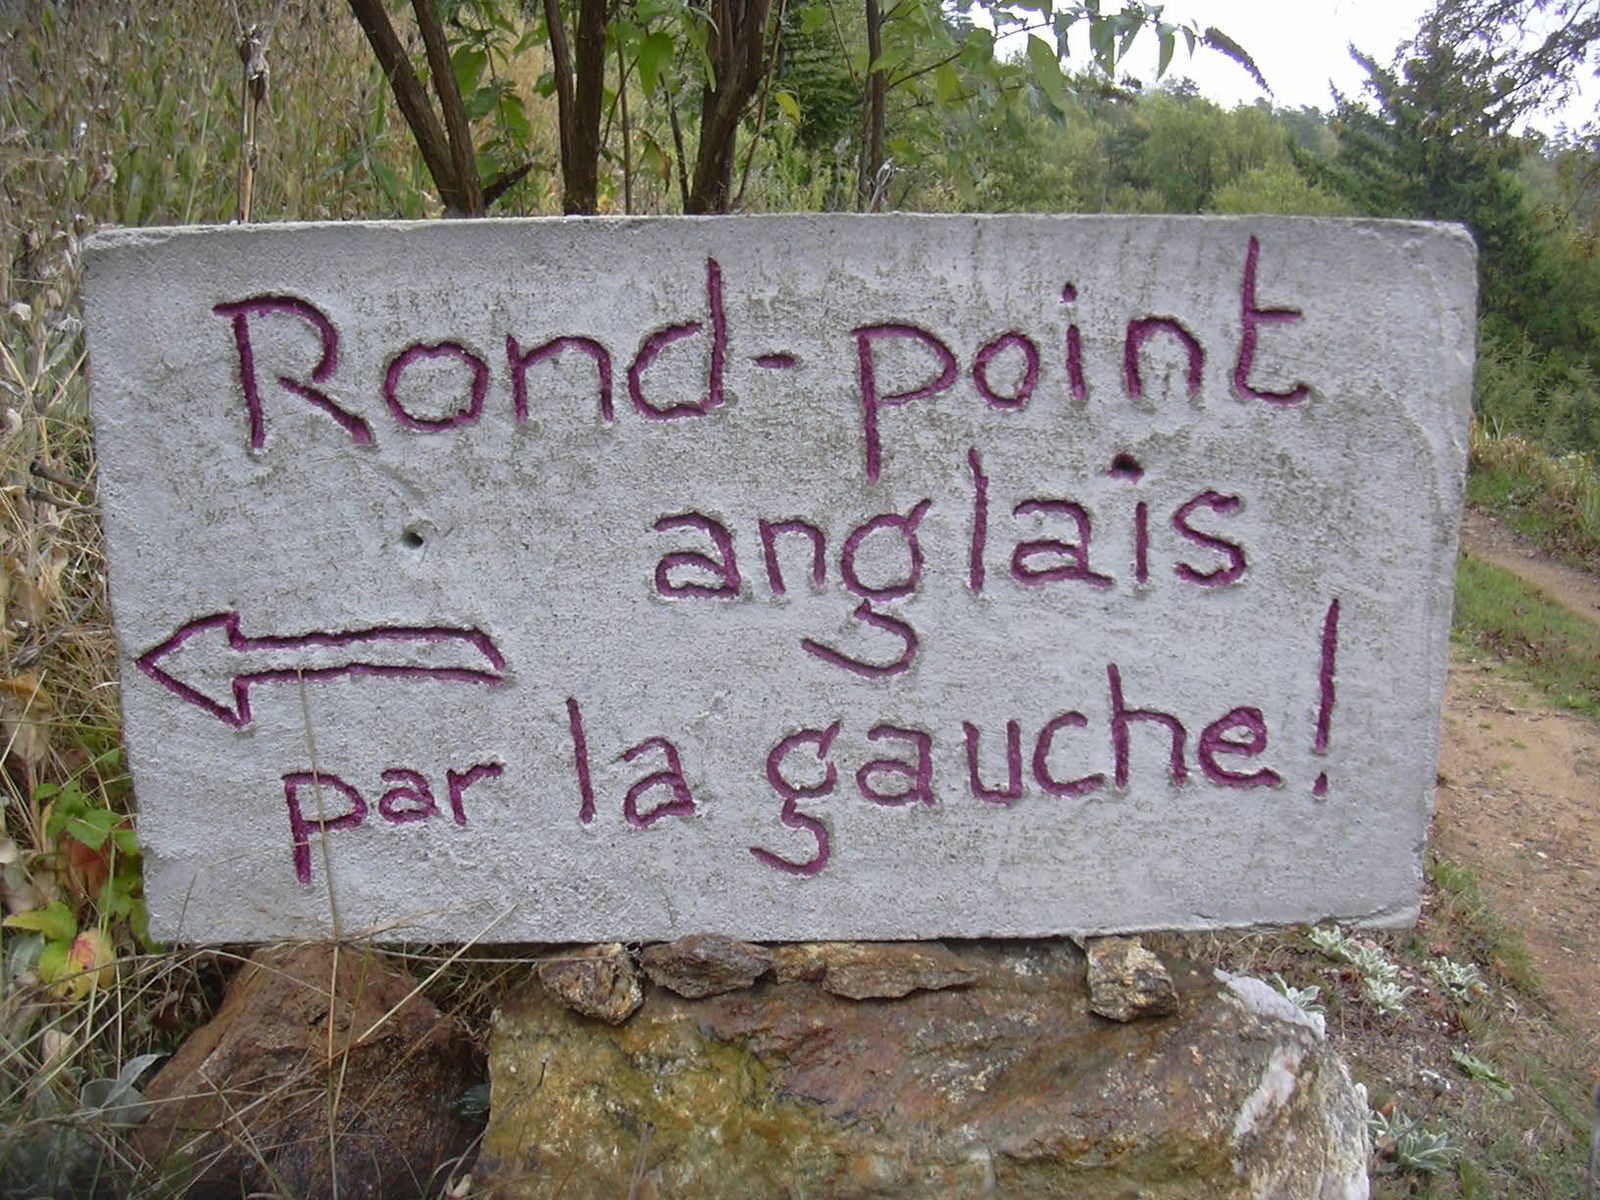 Rond-point
anglais
par la gauche!